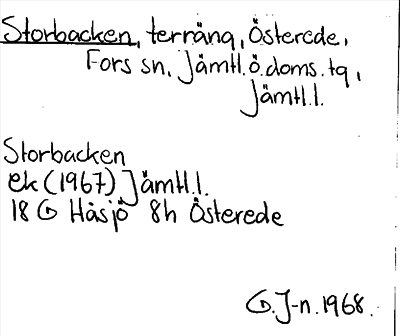 Storbacken, terräng, Österede,
Fors sn, Jämtl. ö. doms. tg,
Jämtl. l.
Storbacken
ek (1967) Jämtl. l.
18 G Håsjö 8h Österede
G. J-n. 1968.